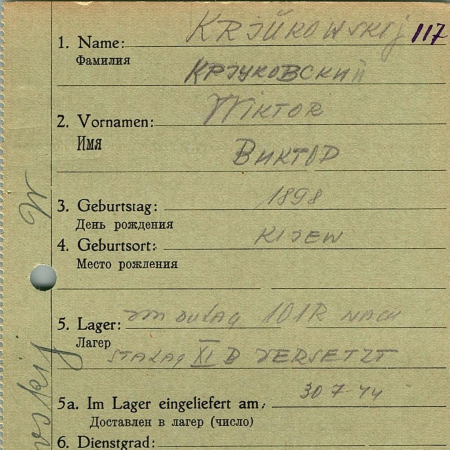 1. Name: KRJŪKOWSKIJ 117
Фамилия КРЈУКОВСКИЙ
2. Vornamen: WIKTOR
Имя
ВИКТОР
3. Geburtstag: 1898
День рождения
4. Geburtsort: KIJEW
Место рождения
5. Lager: DULAG 101R NACH
Лагер
STALAG XI B VERSETZT
5a. Im Lager eingeliefert am: 30 7-44
Доставлен в лагер (число)
6. Dienstgrad: